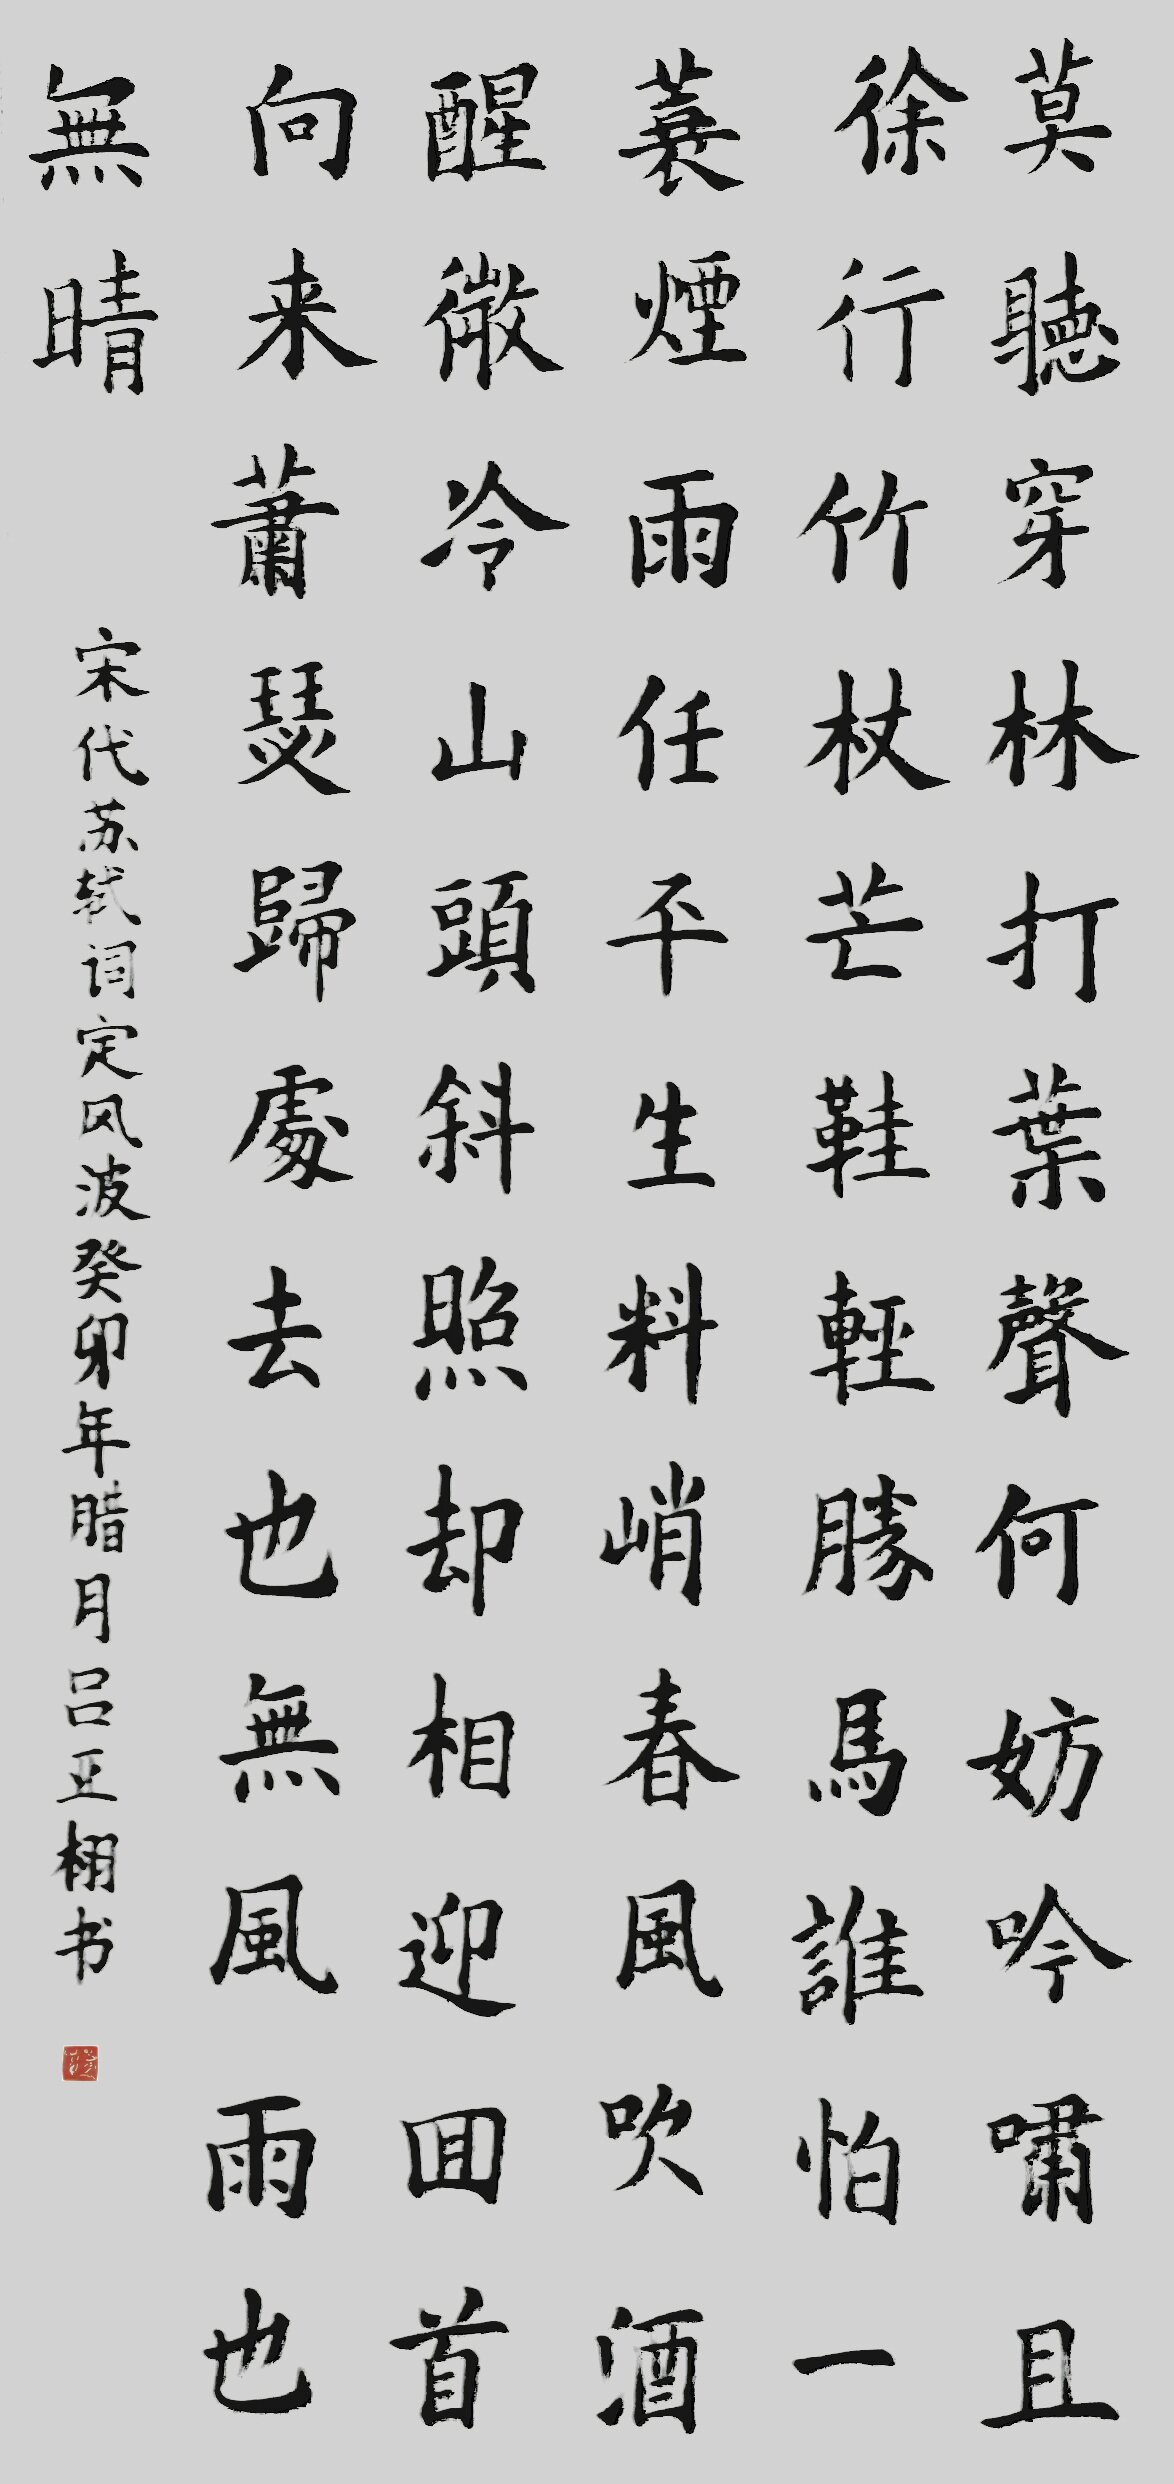 莫聽穿林打葉聲何妨吟嘯且
徐行竹杖芒鞋輕勝馬誰怕一
蓑煙雨任平生料峭春風吹酒
醒微冷山頭斜照却相迎回首
向来蕭瑟歸處去也無風雨也
無晴
宋代苏轼词定风波癸卯年腊月吕正栩书